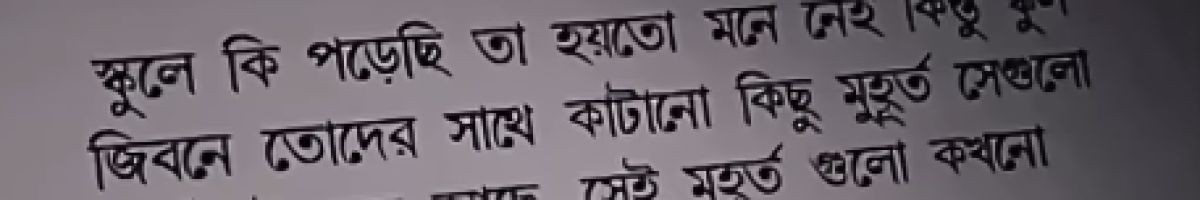 স্কুলে কি পড়েছি তা হয়তো মনে নেই কিন্তু
জিবনে তোদের সাথে কাটানো কিছু মুহূর্ত সেগুলো
সেই মহূর্ত গুলো কখনো